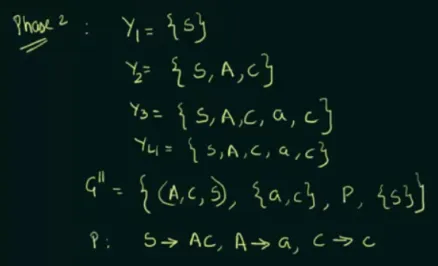 Phase 2 : Y1 = {S}
Y2 = {S, A, C}
Y3 = {S, A, C, a, c}
Y4 = {S, A, C, a, c}
G" = {(A, C, S), {a, c}, P, {S}}
P: S → AC, A → a, C → c